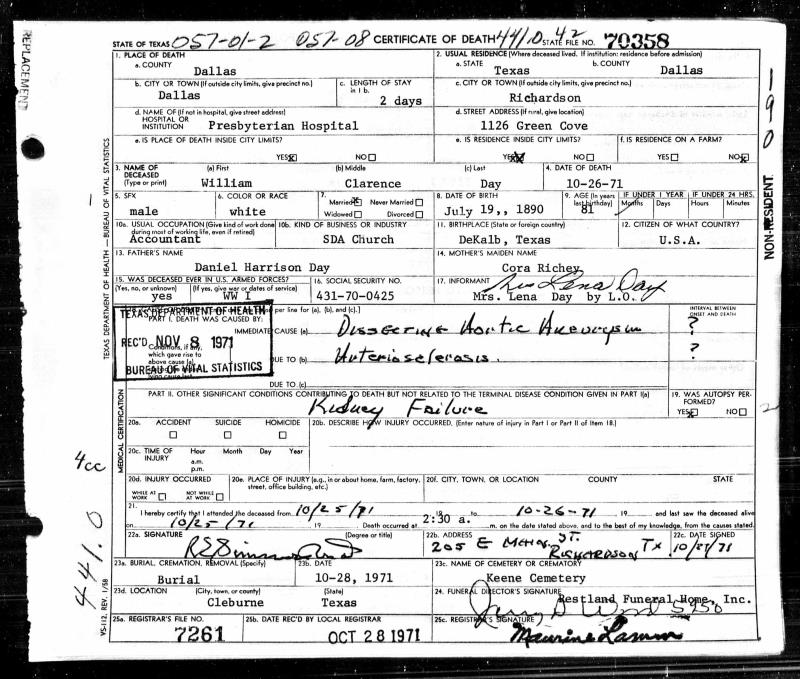 STATE OF TEXAS 057-01-2 057-08 CERTIFICATE OF DEATH 441.0 42 STATE FILE NO. 70358
REPLACEMENT
TEXAS DEPARTMENT OF HEALTH — BUREAU OF VITAL STATISTICS
190
NON-RESIDENT
1. PLACE OF DEATH
a. COUNTY
Dallas
2. USUAL RESIDENCE (Where deceased lived. If institution: residence before admission)
a. STATE b. COUNTY
Texas Dallas
b. CITY OR TOWN (If outside city limits, give precinct no.)
Dallas
c. LENGTH OF STAY
in 1 b.
2 days
c. CITY OR TOWN (If outside city limits, give precinct no.)
Richardson
d. NAME OF (If not in hospital, give street address)
HOSPITAL OR
INSTITUTION Presbyterian Hospital
d. STREET ADDRESS (If rural, give location)
1126 Green Cove
e. IS PLACE OF DEATH INSIDE CITY LIMITS?
YES X NO
e. IS RESIDENCE INSIDE CITY LIMITS?
YES X NO
f. IS RESIDENCE ON A FARM?
YES NO X
3. NAME OF
DECEASED
(Type or print)
(a) First (b) Middle (c) Last
William Clarence Day
4. DATE OF DEATH
10-26-71
1
5. SEX
male
6. COLOR OR RACE
white
7.
Married X Never Married
Widowed Divorced
8. DATE OF BIRTH
July 19,, 1890
9. AGE (In years
last birthday)
81
IF UNDER 1 YEAR IF UNDER 24 HRS.
Months Days Hours Minutes
10a. USUAL OCCUPATION (Give kind of work done
during most of working life, even if retired)
Accountant
10b. KIND OF BUSINESS OR INDUSTRY
SDA Church
11. BIRTHPLACE (State or foreign country)
DeKalb, Texas
12. CITIZEN OF WHAT COUNTRY?
U.S.A.
13. FATHER'S NAME
Daniel Harrison Day
14. MOTHER'S MAIDEN NAME
Cora Richey
15. WAS DECEASED EVER IN U.S. ARMED FORCES?
(Yes, no, or unknown) (If yes, give war or dates of service)
yes WW I
16. SOCIAL SECURITY NO.
431-70-0425
17. INFORMANT Mrs Lena Day
Mrs. Lena Day by L.O.
per line for (a), (b), and (c).]
INTERVAL BETWEEN
ONSET AND DEATH
TEXAS DEPARTMENT OF HEALTH
REC'D NOV 8 1971
BUREAU OF VITAL STATISTICS
PART I. DEATH WAS CAUSED BY:
IMMEDIATE CAUSE (a) Dissecting Aortic Aneurysm ?
Conditions, if any,
which gave rise to
above cause (a)
lying cause last.
DUE TO (b) Arteriosclerosis. ?
DUE TO (c)
MEDICAL CERTIFICATION
PART II. OTHER SIGNIFICANT CONDITIONS CONTRIBUTING TO DEATH BUT NOT RELATED TO THE TERMINAL DISEASE CONDITION GIVEN IN PART I(a)
Kidney Failure
19. WAS AUTOPSY PER-
FORMED?
YES X NO
2
20a. ACCIDENT SUICIDE HOMICIDE
20b. DESCRIBE HOW INJURY OCCURRED. (Enter nature of injury in Part I or Part II of Item 18.)
20c. TIME OF
INJURY
Hour Month Day Year
a.m.
p.m.
4cc
20d. INJURY OCCURRED
WHILE AT
WORK
NOT WHILE
AT WORK
20e. PLACE OF INJURY (e.g., in or about home, farm, factory,
street, office building, etc.)
20f. CITY, TOWN, OR LOCATION COUNTY STATE
21.
I hereby certify that I attended the deceased from 10/25/71 19 to 10-26-71 19 and last saw the deceased alive
on 10/25/71 19 Death occurred at 2:30 a. m. on the date stated above, and to the best of my knowledge, from the causes stated.
441.0
22a. SIGNATURE (Degree or title)
22b. ADDRESS
205 E ST.
RICHARDSON TX
22c. DATE SIGNED
10/27/71
23a. BURIAL, CREMATION, REMOVAL (Specify)
Burial
23b. DATE
10-28, 1971
23c. NAME OF CEMETERY OR CREMATORY
Keene Cemetery
23d. LOCATION (City, town, or county) (State)
Cleburne Texas
24. FUNERAL DIRECTOR'S SIGNATURE
Restland Funeral Home, Inc.
Jerry D Wood 5950
25a. REGISTRAR'S FILE NO.
7261
25b. DATE REC'D BY LOCAL REGISTRAR
OCT 28 1971
25c. REGISTRAR'S SIGNATURE
Maurine Lamm
VS-112, REV. 1/58